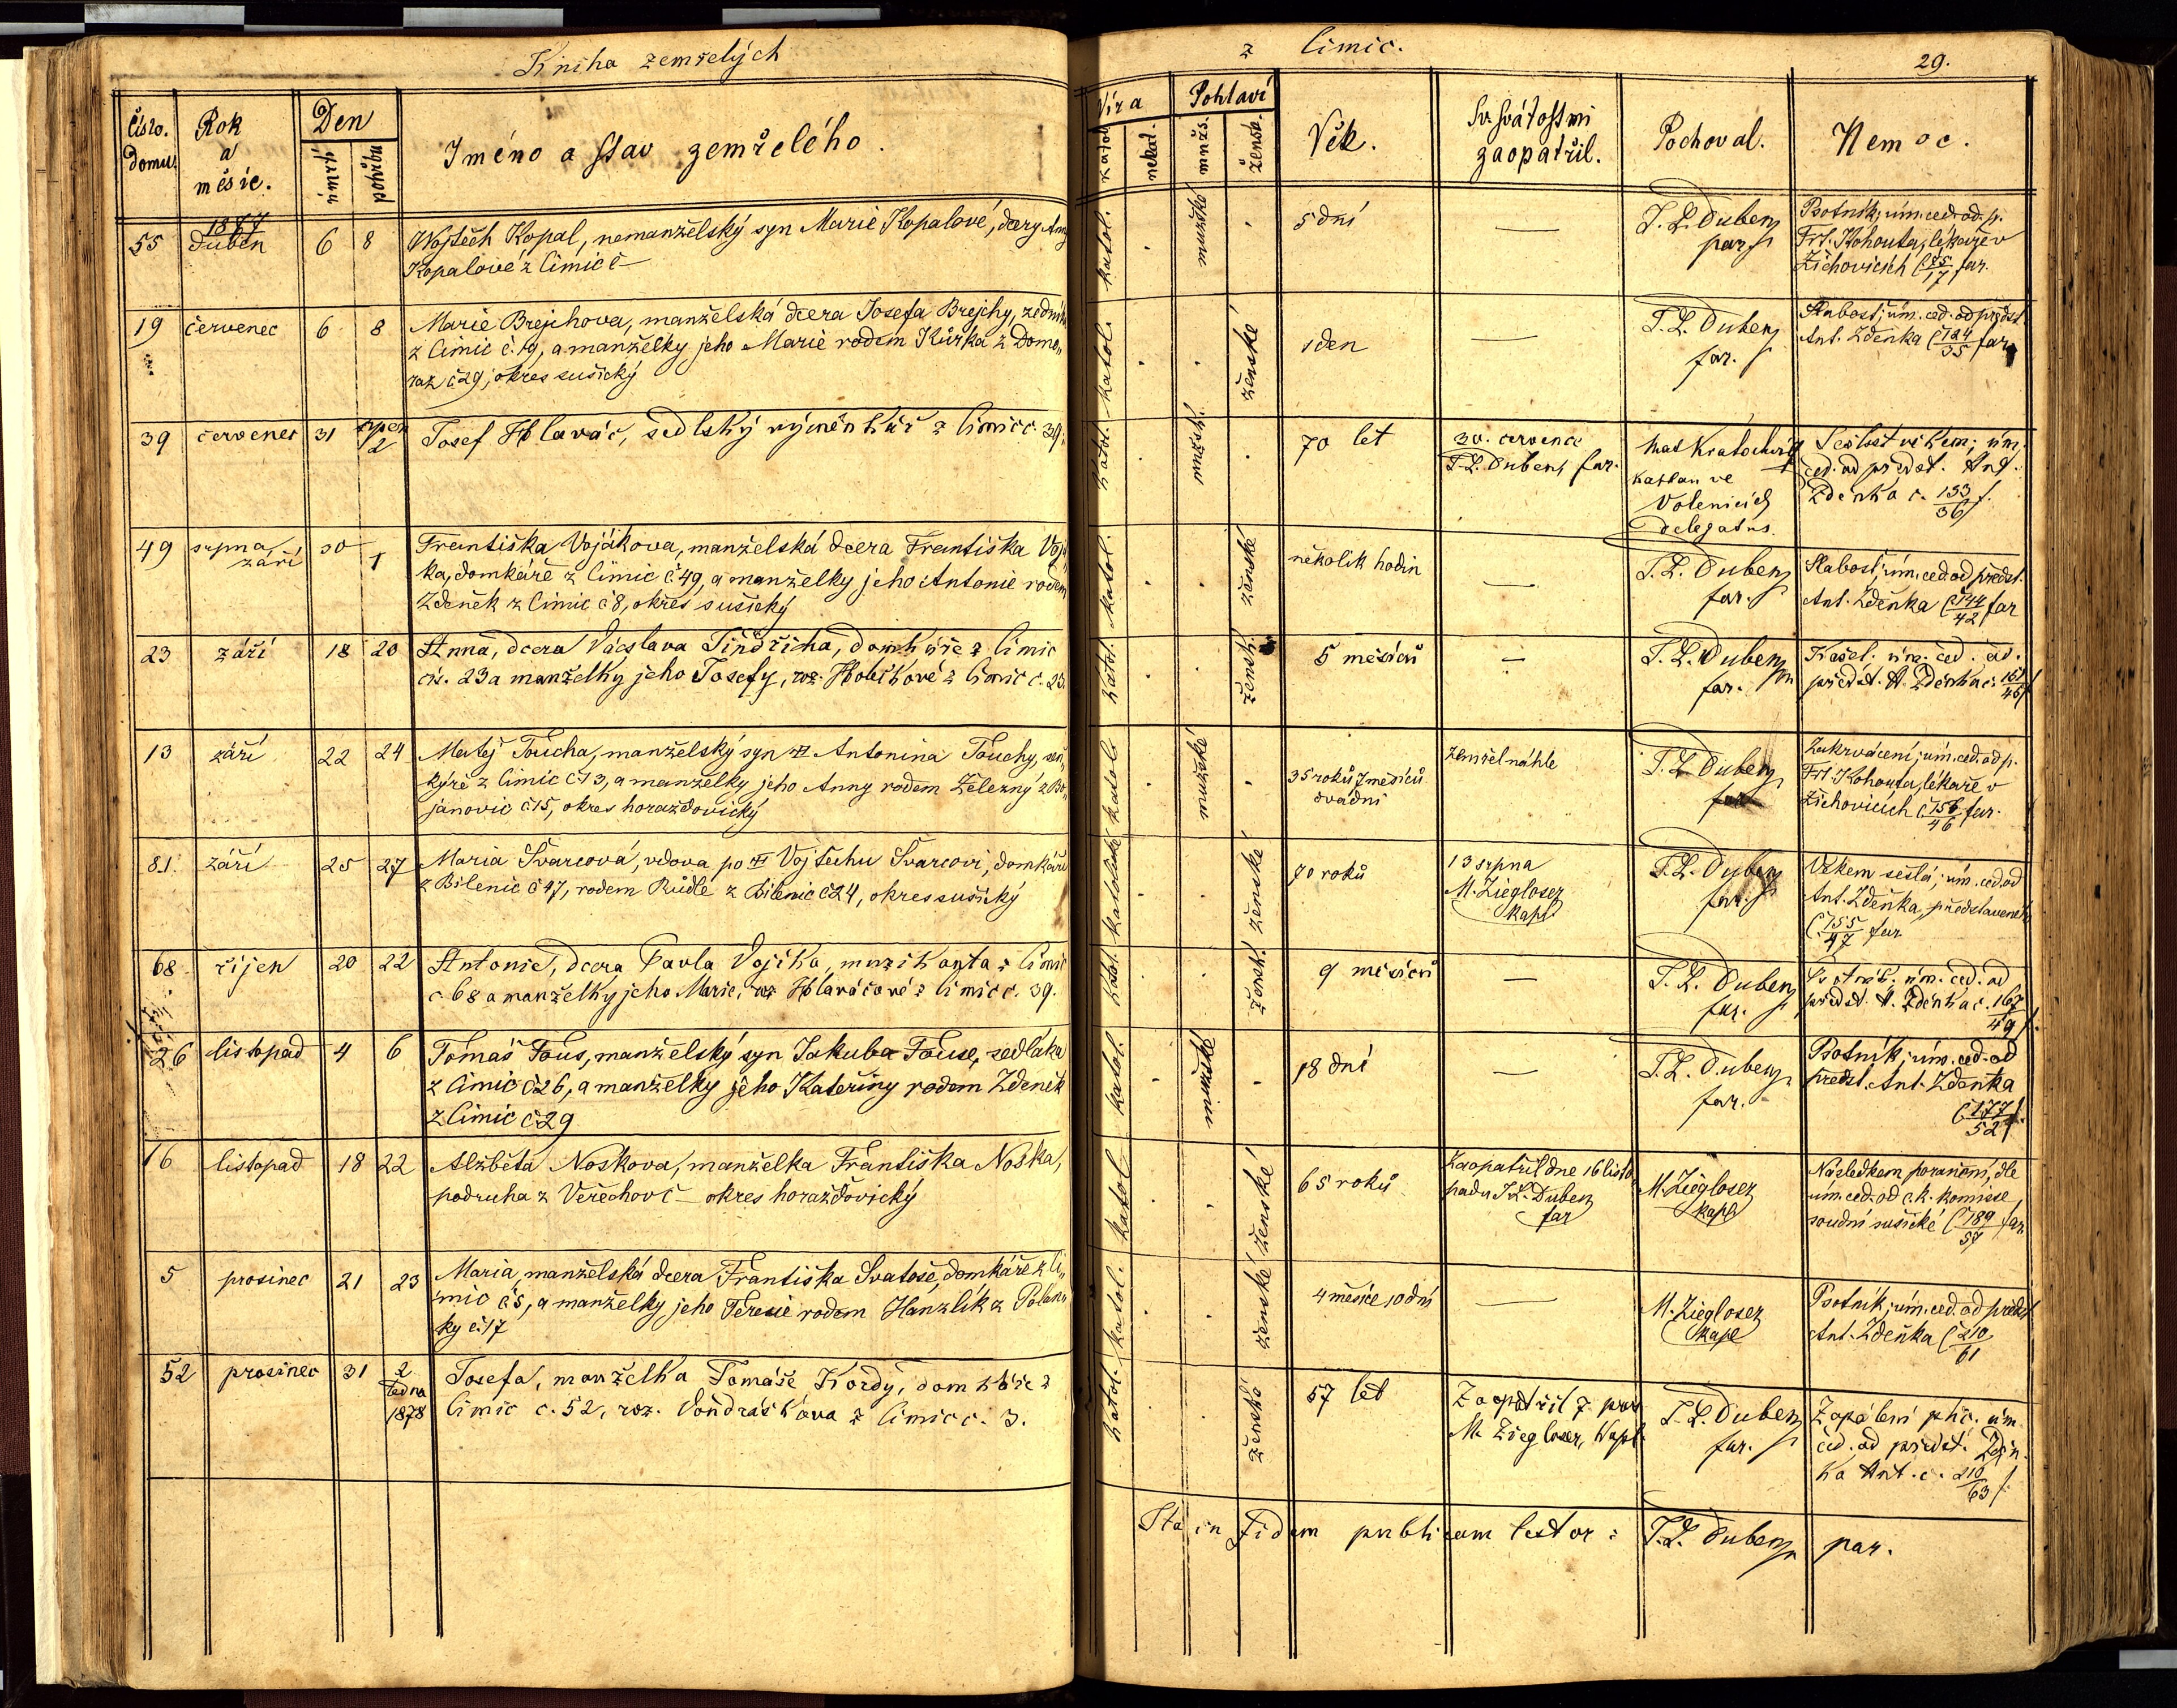 Kniha zemřelých
z Cimic.
29.
Číslo. domu.
Rok a měsíc.
Den
úmrtí
pohřbu
Jméno a stav zemřelého.
Víra
katol.
nekat.
Pohlaví
mužs.
žensk.
Věk.
Sv. svátostmi zaopatřil.
Pochoval.
Nemoc.
55 1877 duben 6 8 Wojtěch Kopal, nemanželský syn Marie Kopalové, dcery Anny
Kopalové z Cimic č
katol. mužské 5 dní — J. L. Duben par.
Psotník; úm. ced. od p.
Frt. Kohouta, lékaře v
Žichovicích č 75/17 far.
19 červenec 6 8 Marie Brejchova, manželská dcera Josefa Brejchy, zedníka
z Cimic č. 19, a manželky jeho Marie rodem Kůrka z Domo„
raz č 29, okres sušický
katol. ženské 1 den — J. L. Duben far.
Slabost; úm. ced. od předst.
Ant. Zdeňka č 124/35 far.
39 červenec 31 srpen 2 Josef Hlaváč, sedlský výměnkář z Cimic č. 39.
katol. mužsk. 70 let
30. července
J. L. Duben far.
Mat Kratochvíl
kaplan ve
Volenicích
delegatus.
Sešlost věkem; úm.
ced. od předst. Ant.
Zdeňka č. 133/36 f.
49 srpna září 30 1 Františka Vojákova, manželská dcera Františka Vojá„
ka, domkáře z Cimic č 49, a manželky jeho Antonie rodem
Zdeněk z Cimic č 8, okres sušický
katol. ženské několik hodin — J. L. Duben far.
Slabost; úm. ced. od předst.
Ant. Zdeňka č 144/42 far
23 září 18 20 Anna, dcera Václava Jindřicha, domkáře z Cimic
čís. 23 a manželky jeho Josefy, roz. Hobikové z Cimic č. 23.
katol. žensk. 5 měsíců — J. L. Duben far.
Kašel; úm. ced. od.
předst. A. Zdeňka č. 151/45 f
13 září 22 24 Matěj Toucha, manželský syn Antonína Touchy, šen„
kýře z Cimic č 13, a manželky jeho Anny rodem Železný z Bo„
janovic č 15, okres horažďovický
katol. mužské 35 roků 7 měsíců
dva dni
Zemřel náhle J. L. Duben far
Zakrvácení; úm. ced. od p.
Frt. Kohouta, lékaře v
Žichovicích č 156/46 far.
81. září 25 27 Maria Švarcová, vdova po Vojtěchu Švarcovi, domkáři
z Bilenic č 47, rodem Rudle z Bilenic č 24, okres sušický
katolické ženské 70 roků
13 srpna
M. Ziegloser
kapl.
J. L. Duben far.
Věkem sešlá; úm. ced. od
Ant. Zdeňka, představeného
č 155/47 far
68 říjen 20 22 Antonie, dcera Pavla Vojíka, muzikanta z Cimic
č. 68 a manželky jeho Marie, roz Hlaváčové z Cimic č. 39.
katol. žensk. 9 měsíců — J. L. Duben far.
úm. ced. od
předst. A. Zdeňka č. 167/49 f.
26 listopad 4 6 Tomáš Touš, manželský syn Jakuba Touše, sedláka
z Cimic č 26, a manželky jeho Kateřiny rodem Zdeněk
z Cimic č 29
katol. mužské 18 dní — J. L. Duben far.
Psotník; úm. ced. od
předst. Ant. Zdeňka
č 177/52 f.
16 listopad 18 22 Alžběta Noskova, manželka Františka Noska,
podruha z Veřechov č — okres horažďovický
katol ženské 65 roků
Zaopatřil dne 16 listo„
padu J. L. Duben
far
M. Ziegloser
kapl
Následkem poranění, dle
úm. ced. od c. k. komisse
soudní sušické č 189/57 far
5 prosinec 21 23 Maria, manželská dcera Františka Svatoše, domkáře z Ci„
mic č 5, a manželky jeho Teresie rodem Hanzlík z Polen„
ky č. 17
katol. ženské 4 měsíce 10 dní — M. Ziegloser
kapl
Psotník; úm. ced. od předst
Ant. Zdeňka č 210/61
52 prosinec 31 2 ledna 1878 Josefa, manželka Tomáše Kordy, domkáře z
Cimic č. 52, roz. Vondráškova z Cimic č. 3.
katol. ženské 57 let
Zaopatřil 7. pros
M. Ziegloser, kapl.
J. L. Duben far.
Zapálení plic. úm.
ced. od předst. Zdeň„
ka Ant. č. 210/63 f.
Ita in fidem publicam testor: J. L. Duben par.